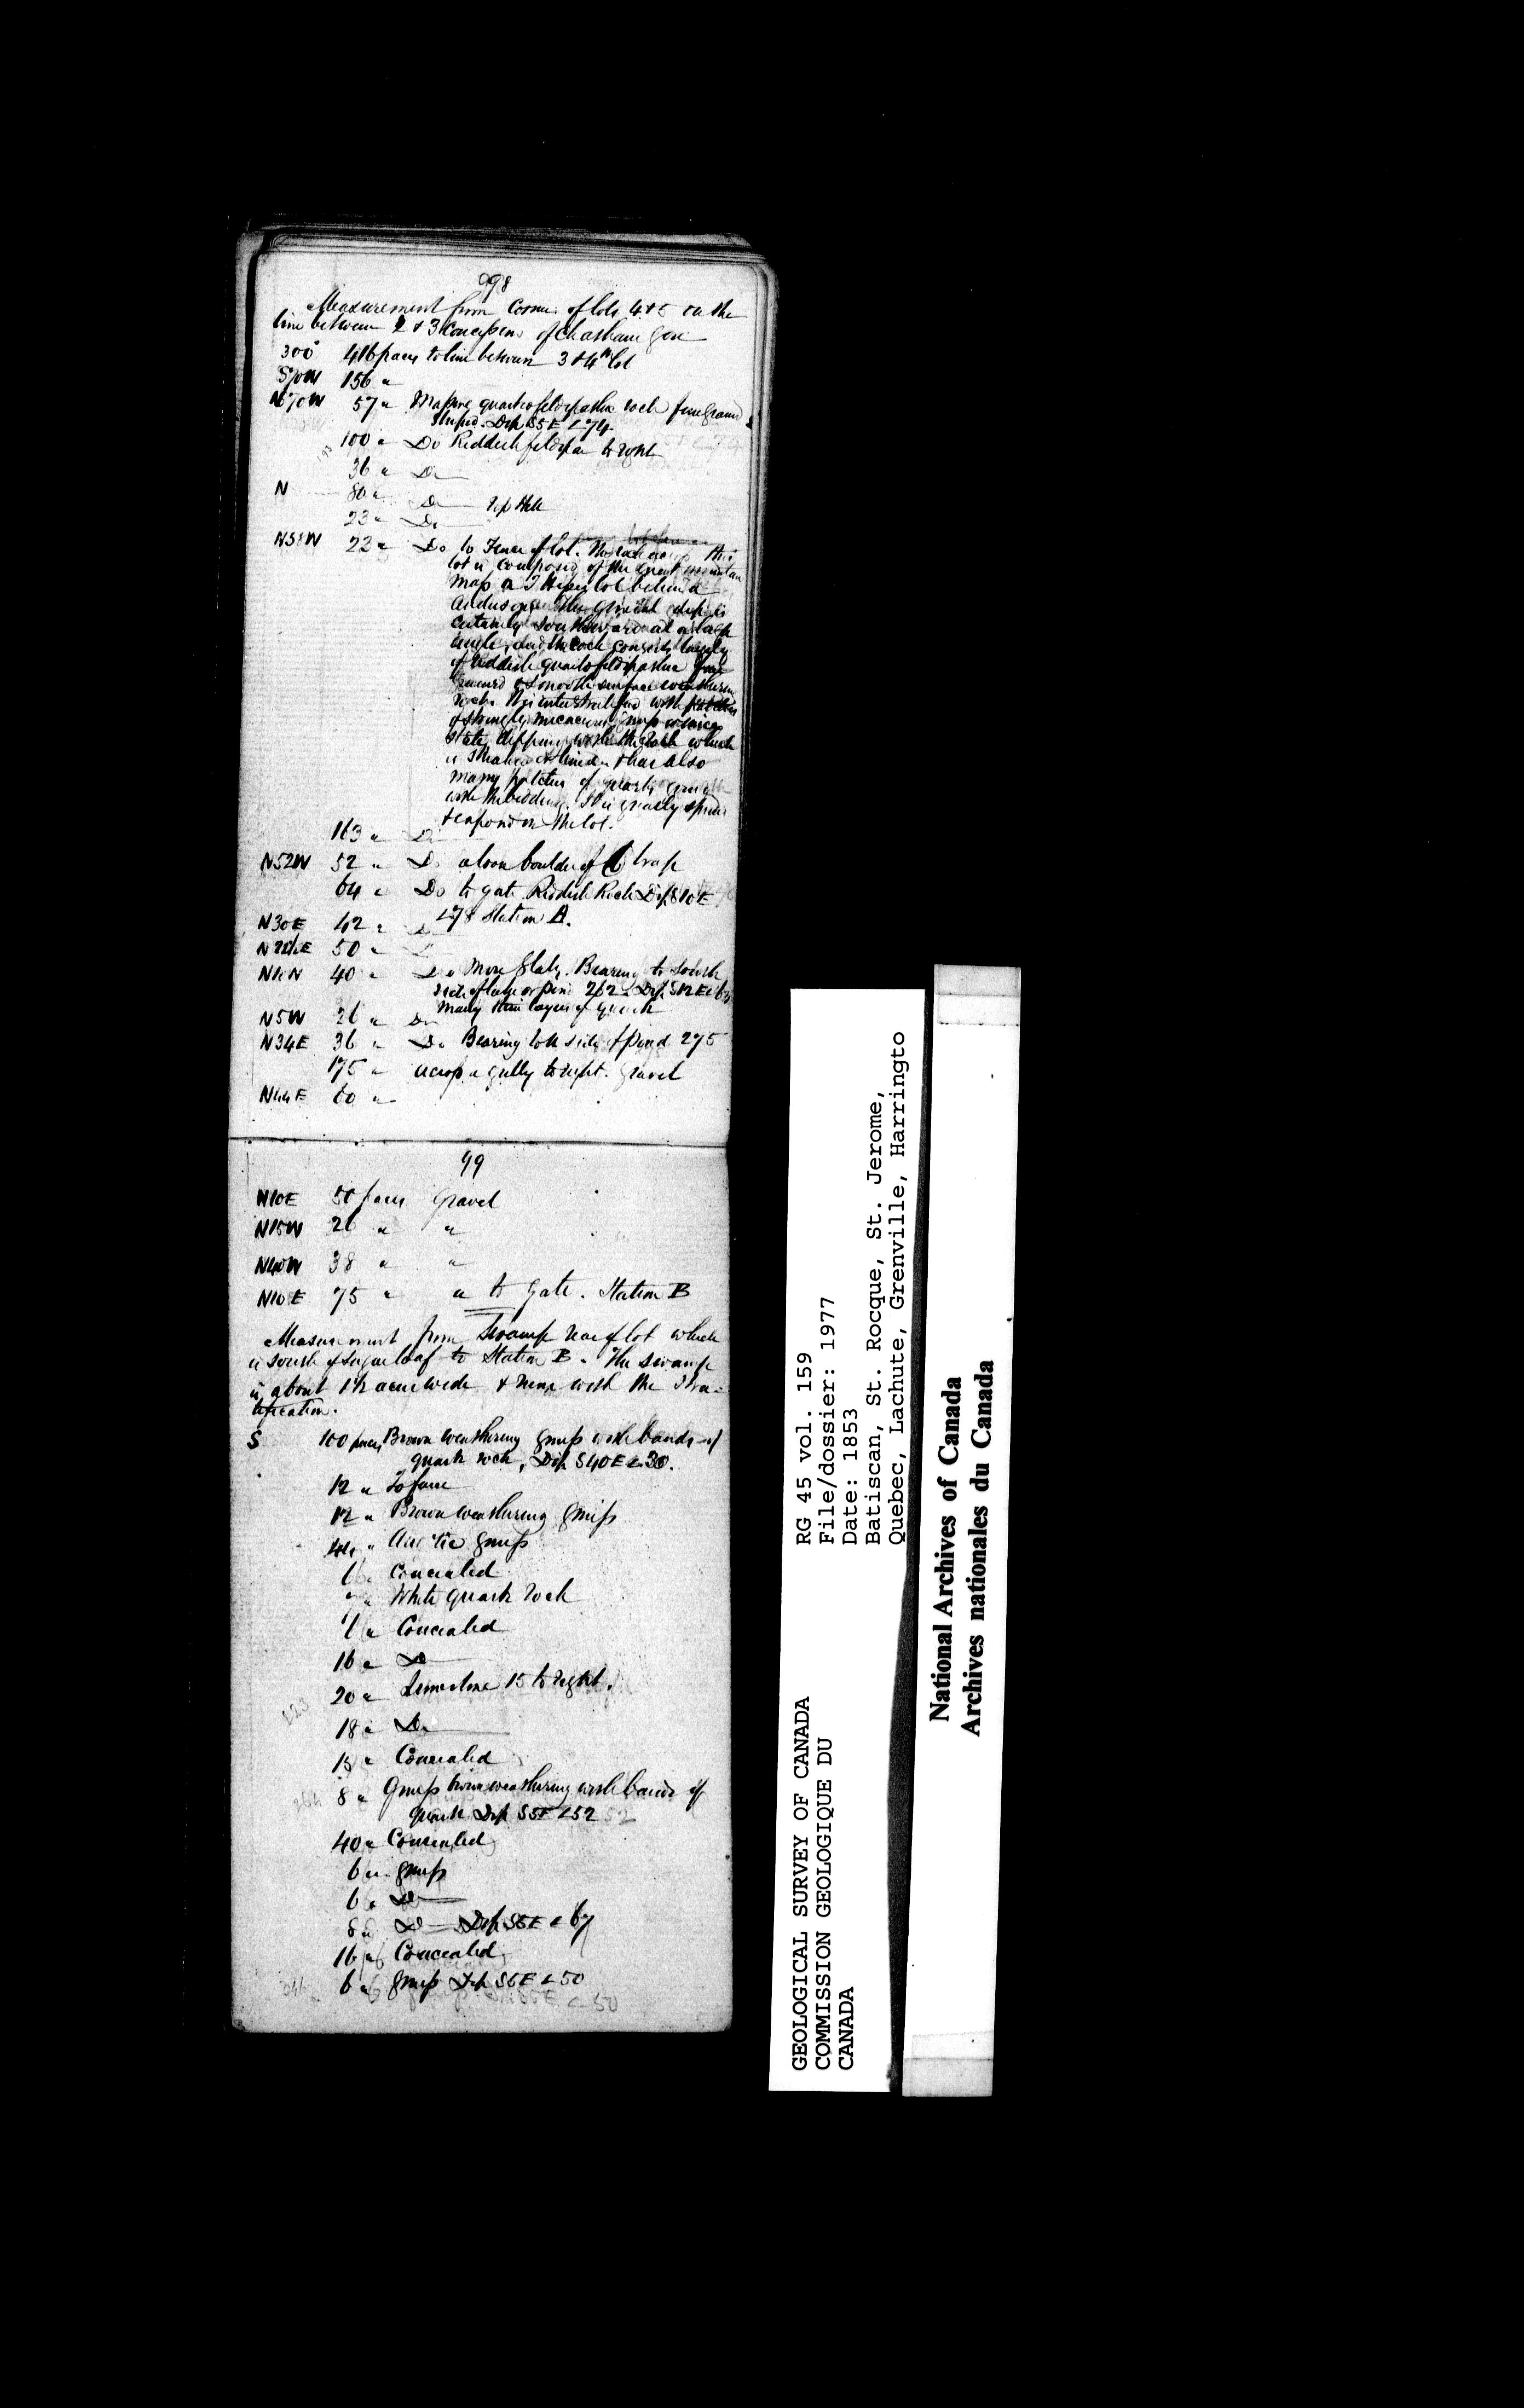 98
Measurement from Corner of lots 4 & 5 on the
line between 2 & 3 Concessions of Chatham Gore
300° 416 paces to line between 3 & 4th lot
S70W 156 "
N70W 57 " Massive quartzofeldspathic rock fine grained
striped. Dip S5E <74
100 " Do Reddish feldspar to right
36 " Do
N 80 " Do top Hill
23 " Do
N58W 22 " Do to Fence of lot. The
lot is composed of the great mountain
mass a lot behind
The general dip is
certainly southward at a large
angle, and the rock consists largely
of reddish quartzofeldspathic fine
grained & smooth surface weathering
rock. It is interstratified with patches
of strongly micaceous gneiss or mica
slate dipping with the rock which
is & has also
many patches of quartz
with the bedding. It is greatly
& exposed on the lot.
163 " Do
N52W 52 " Do a loose boulder of trap
64 " Do to gate. Reddish Rock Dip S10E
<78 Station A.
N30E 42 "
50 "
40 " Do More slaty. Bearing to South
side of lake or pond 262. Dip S12E
Many thin layers of quartz
N5W 26 " Do
N34E 36 " Do Bearing to N side of pond 275
175 " across a gully to right. Gravel
N44E 60 "
99
N10E 50 paces Gravel
N15W 26 " "
N40W 38 " "
N10E 75 " " to gate. Station B
Measurement from Swamp rear of lot which
is south of Sugar loaf to Station B. The swamp
is about 1½ acre wide & runs with the stra-
tification.
S 100 paces Brown weathering gneiss with bands of
quartz rock, Dip S40E <30.
12 " To fence
12 " Brown weathering gneiss
44 " gneiss
6 " Concealed
7 " White quartz rock
" Concealed
16 " Do
20 " Limestone 15 to right.
18 " Do
15 " Concealed
8 " Gneiss brown weathering with bands of
quartz Dip S5E <52
40 " Concealed
6 " gneiss
6 " Do
8 " Do Dip S5E <67
16 " Concealed
6 " gneiss Dip S6E <50
GEOLOGICAL SURVEY OF CANADA
COMMISSION GEOLOGIQUE DU
CANADA
RG 45 vol. 159
File/dossier: 1977
Date: 1853
Batiscan, St. Rocque, St. Jerome,
Quebec, Lachute, Grenville, Harringto
National Archives of Canada
Archives nationales du Canada